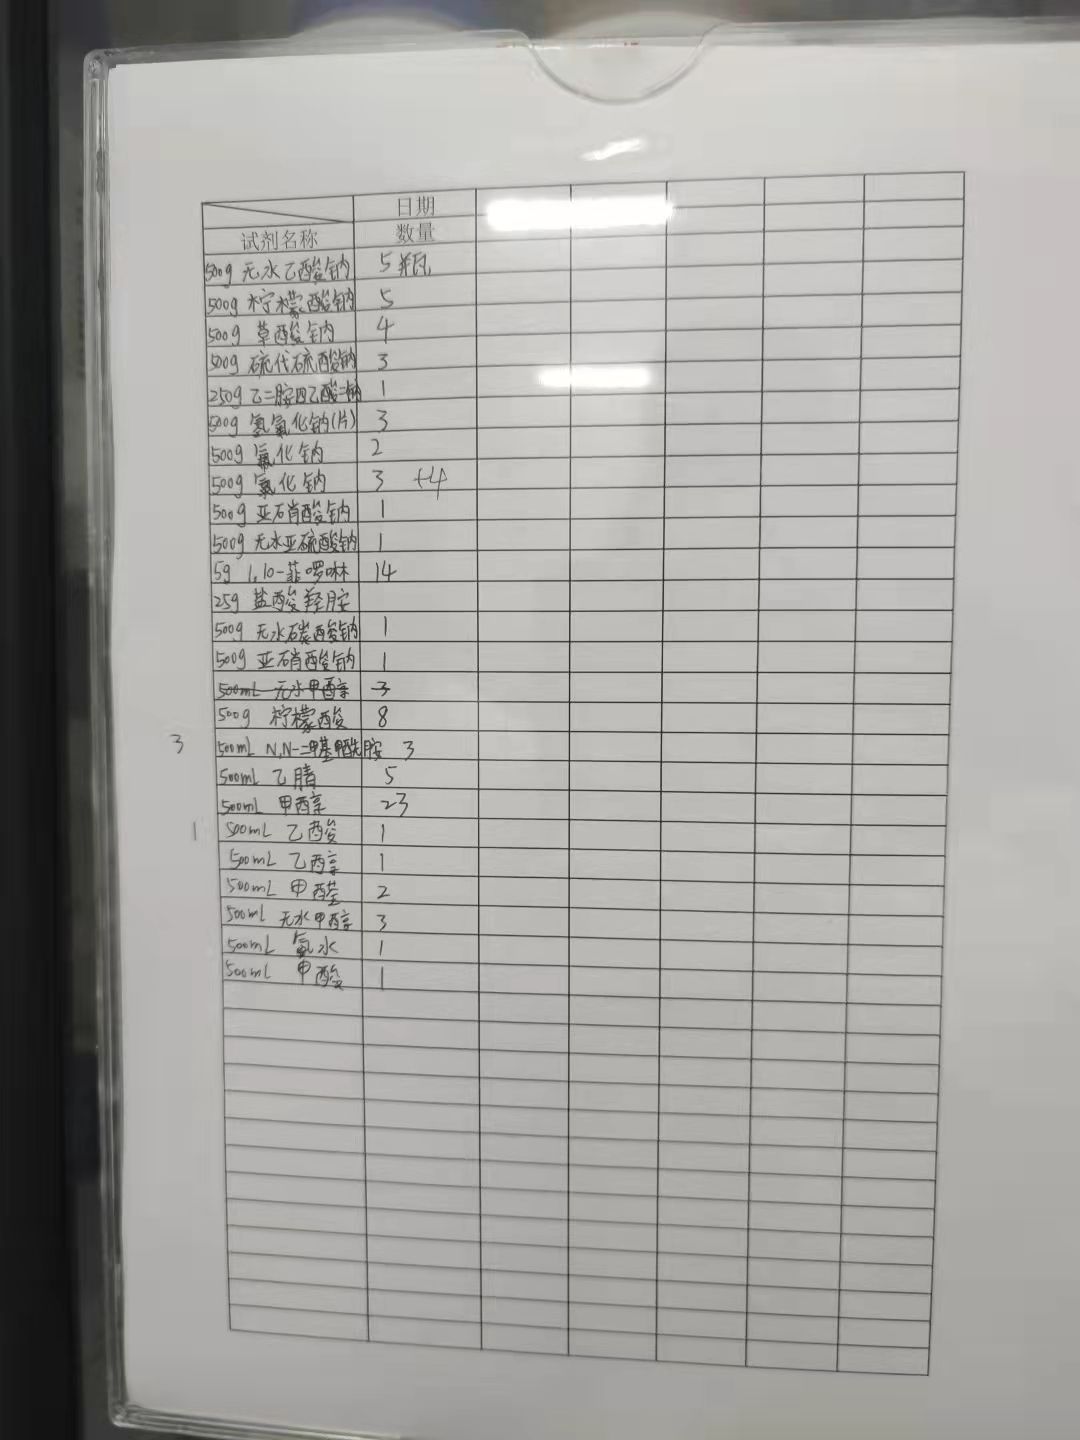 日期
试剂名称 数量
500g 无水乙酸钠 5瓶
500g 柠檬酸钠 5
500g 草酸钠 4
500g 硫代硫酸钠 3
250g 乙二胺四乙酸二钠 1
500g 氢氧化钠(片) 3
500g 氟化钠 2
500g 氯化钠 3 +4
500g 亚硝酸钠 1
500g 无水亚硫酸钠 1
5g 1,10-菲啰啉 14
25g 盐酸羟胺
500g 无水碳酸钠 1
500g 亚硝酸钠 1
500mL 无水甲醇 3
500g 柠檬酸 8
3 500mL N,N-二甲基甲酰胺 3
500mL 乙腈 5
500mL 甲醇 23
1 500mL 乙酸 1
500mL 乙醇 1
500mL 甲醛 2
500mL 无水甲醇 3
500mL 氨水 1
500mL 甲酸 1